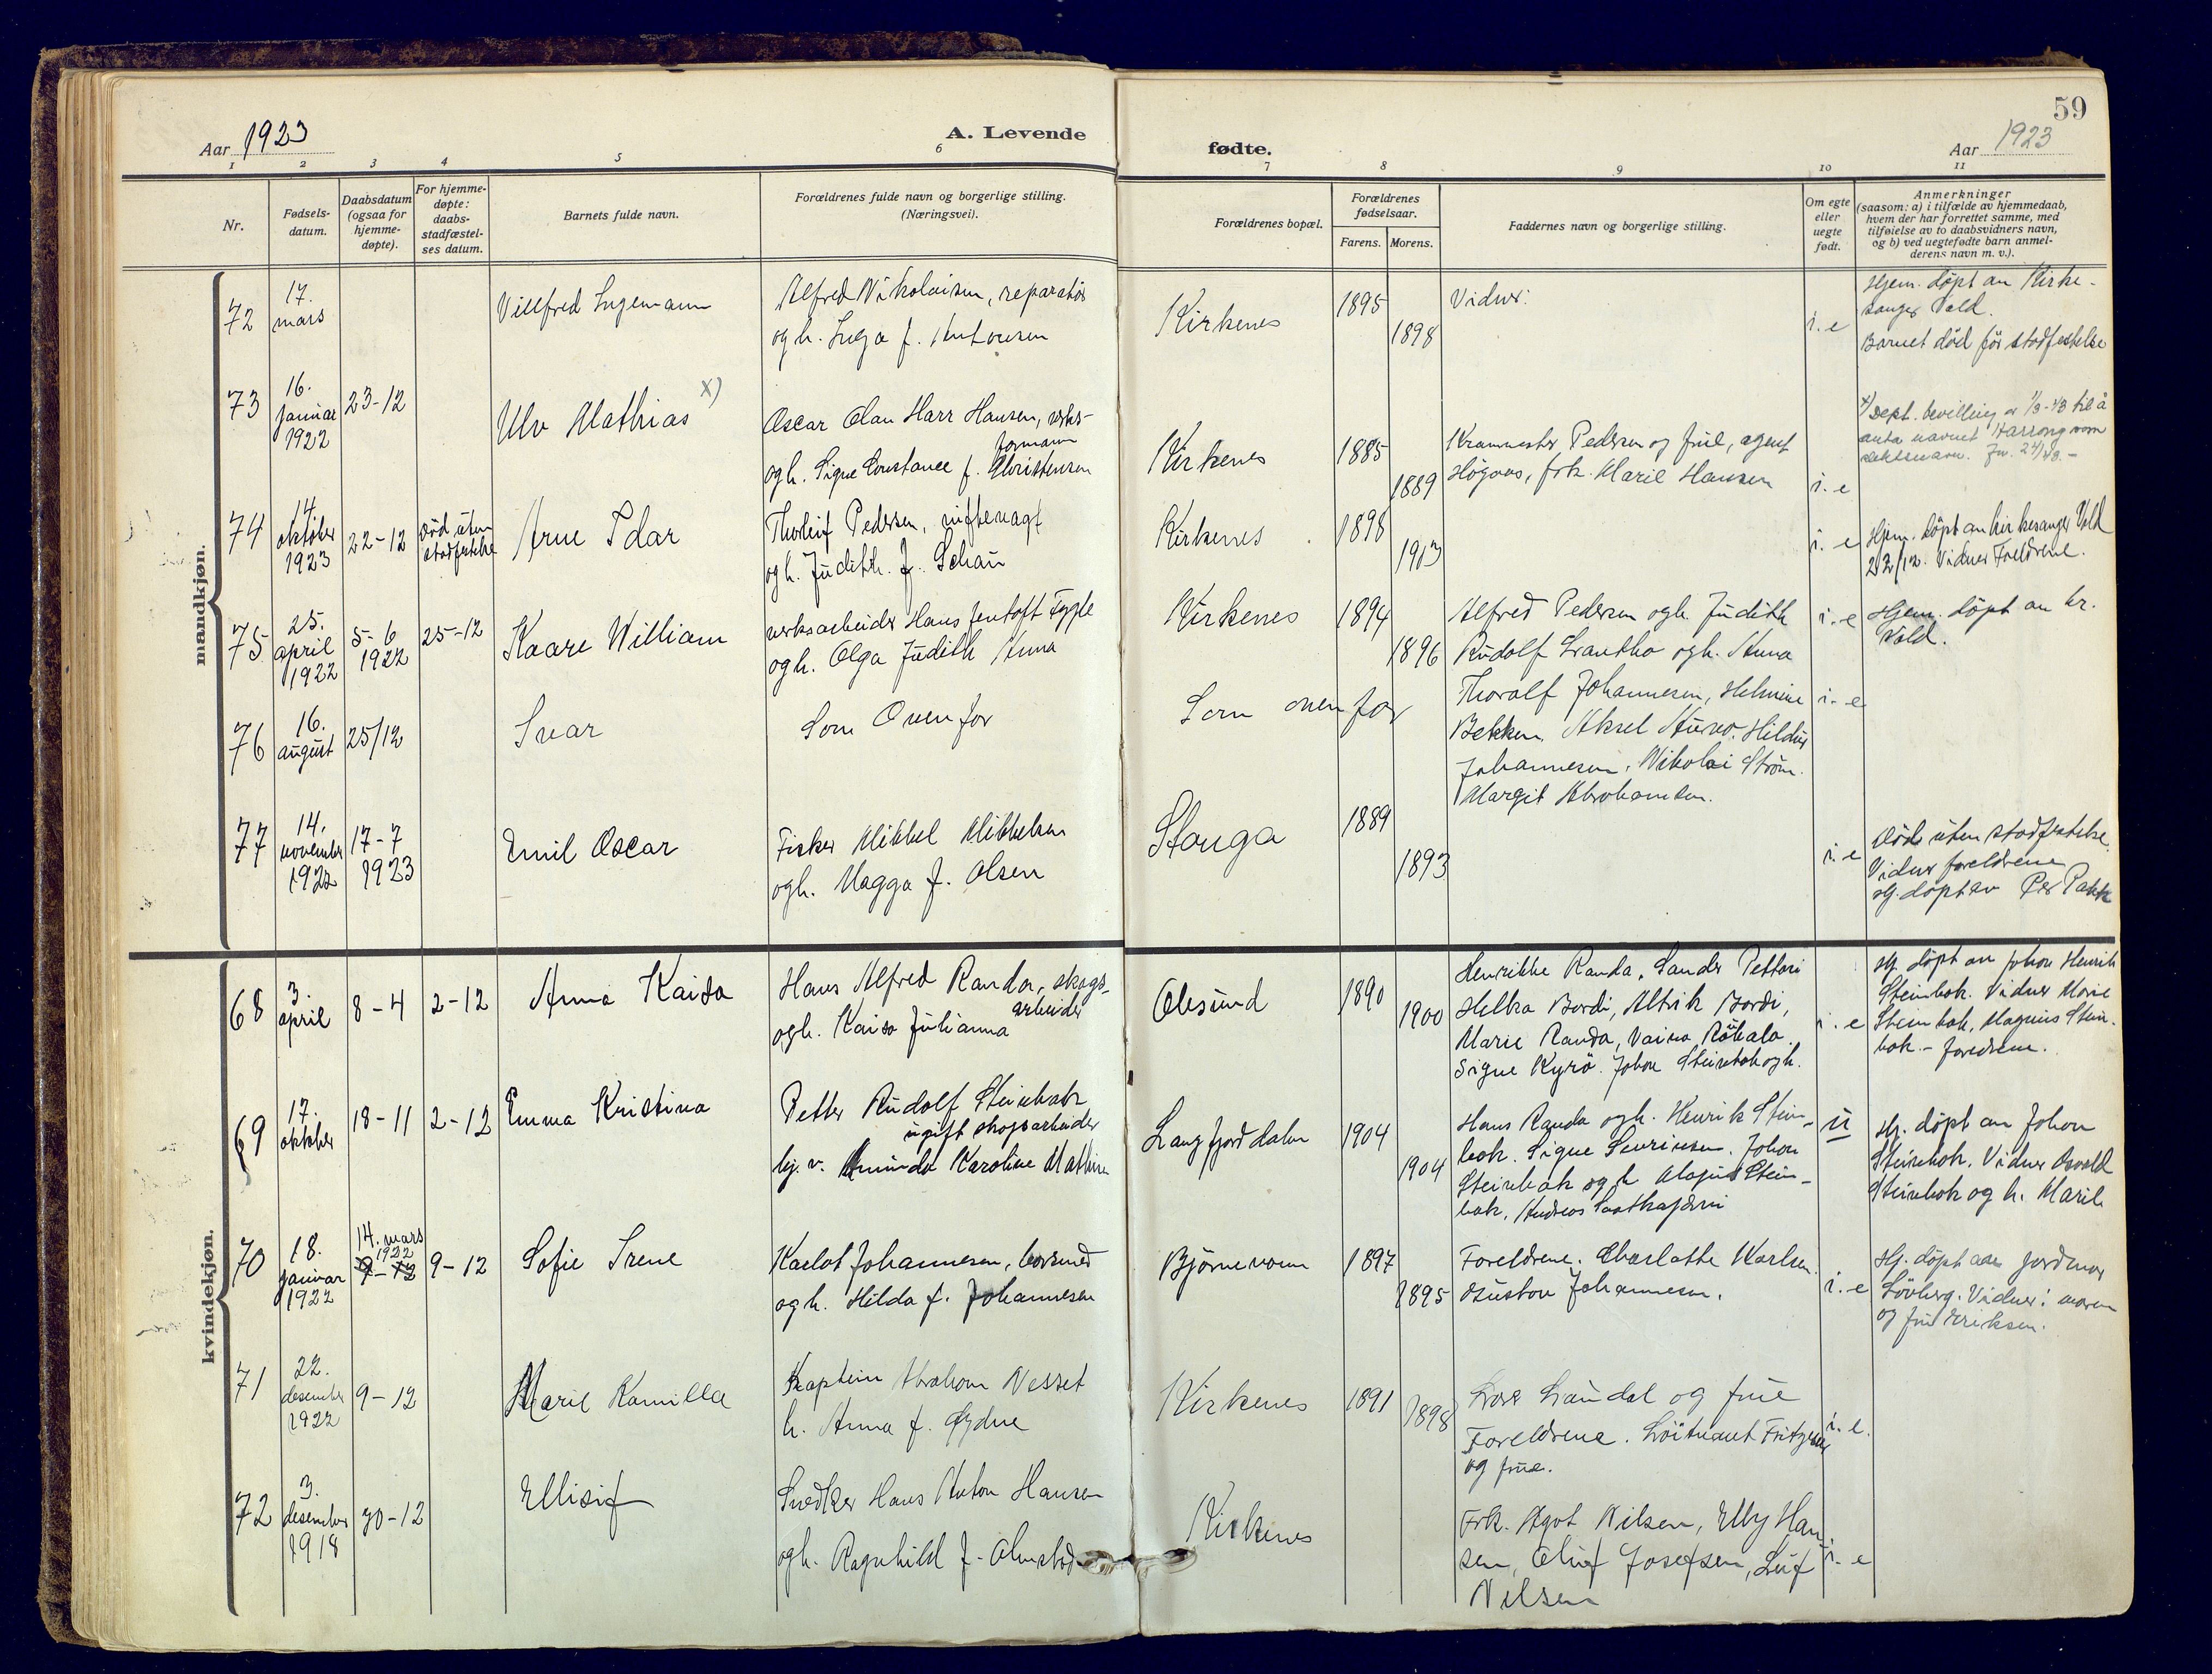 59
Aar 1923
A. Levende
fødte.
Aar 1923
1 2 3 4 5 6 7 8 9 10 11
Nr.
Fødsels-
datum.
Daabsdatum
(ogsaa for
hjemme-
døpte).
For hjemme-
døpte:
daabs-
stadfæstel-
ses datum.
Barnets fulde navn.
Forældrenes fulde navn og borgerlige stilling.
(Næringsvei).
Forældrenes bopæl.
Forældrenes
fødselsaar.
Farens. Morens.
Faddernes navn og borgerlige stilling.
Om egte
eller
uegte
født.
Anmerkninger
(saasom: a) i tilfælde av hjemmedaab,
hvem der har forrettet samme, med
tilføielse av to daabsvidners navn,
og b) ved uegtefødte barn anmel-
derens navn m. v.).
mandkjøn.
72
17.
mars
Villfred Ingemann
Alfred Nikolaisen, reparatør
og h. Inga f. Antonsen
Kirkenes
1895
1898
Vidner:
i. e
Hjem. døpt av Kirke-
sanger Vold.
Barnet død før stadfestelse
73
16.
januar
1922
23-12
Ulv Mathias x)
Oscar Olan Harr Hansen, verks-
formann
og h. Signe Constance f. Christensen
Kirkenes
1885
1889
Pedersen og frue, agent
frk. Marie Hansen
i. e
x) Dept. bevilling av 1/3-43 til å
anta navnet som
slektsnavn.
74
14
oktober
1923
22-12
død uten
stadfestelse
Arne Idar
Thorleif Pedersen,
og h. Judith f. Schau
Kirkenes
1898
1903
i. e
Hjem. døpt av kirkesanger Vold
22/12. Vidner Foreldrene.
75
25.
april
1922
5-6
1922
25-12
Kaare William
verksarbeider Hans Jentoft Fygle
og h. Olga Judith Anna
Kirkenes
1894
1896
Alfred Pedersen og h. Judith
Rudolf og h. Anna
i. e
Hjem. døpt av kr.
Vold.
76
16.
august
25/12
Ivar
Som Ovenfor
Som ovenfor
Thoralf Johannesen, Helmine
Bekken, Aksel Hildur
Johannesen, Nikolai Strøm.
Margit Abrahamsen.
i. e
77
14.
november
1922
17-7
1923
Emil Oscar
Fisker Mikkel Mikkelsen
og h. Magga f. Olsen
Stonga
1889
1893
i. e
Død uten stadfestelse.
Vidner foreldrene
Hj. døpt av Per
kvindekjøn.
68
3.
april
8-4
2-12
Anna Kaisa
Hans Alfred Randa, skogs-
arbeider
og h. Kaisa Julianna
Olesund
1890
1900
Henrikke Randa, Sander Pettari
Helka Bordi, Bordi,
Marie Randa,
Signe Kyrø. Johan Steinbak og h.
i. e
Hj. døpt av Johan Henrik
Steinbak. Vidner Marie
Steinbak, Magnus Stein-
bak. - foreldrene.
69
17.
oktober
18-11
2-12
Emma Kristina
Petter Rudolf Steinbak
ugift skogsarbeider
Karoline Mathine
Langfjorddalen
1904
1904
Hans Randa og h. Henrik Stein-
bak. Signe Severinsen. Johan
Steinbak og h. Magnus Stein-
bak, Andreas
u
Hj. døpt av Johan
Steinbak. Vidner Osvald
Steinbak og h. Marie
70
18.
januar
1922
14. mars
1922
9-12
9-12
Sofie Irene
Karlot Johannesen, borsmed
og h. Hilda f. Johannesen
Bjørnevann
1897
1895
Foreldrene. Charlotte Karlsen.
Gustav Johannesen.
i. e
Hj. døpt av jordmor
Løvberg. Vidner: moren
og fru Eriksen.
71
22.
desember
1922
9-12
Marie Kamilla
Kaptein Abraham Nesset
h. Anna f. Øydne
Kirkenes
1891
1898
og frue
Foreldrene. Løitnant Fritzner
og frue.
i. e.
72
3.
desember
1918
30-12
Ellisif
Snedker Hans Anton Hansen
og h. Ragnhild f. Almstad
Kirkenes
Frk. Agot Nilsen, Elly Han-
sen, Oluf Josefsen, Leif
Nilsen
i. e